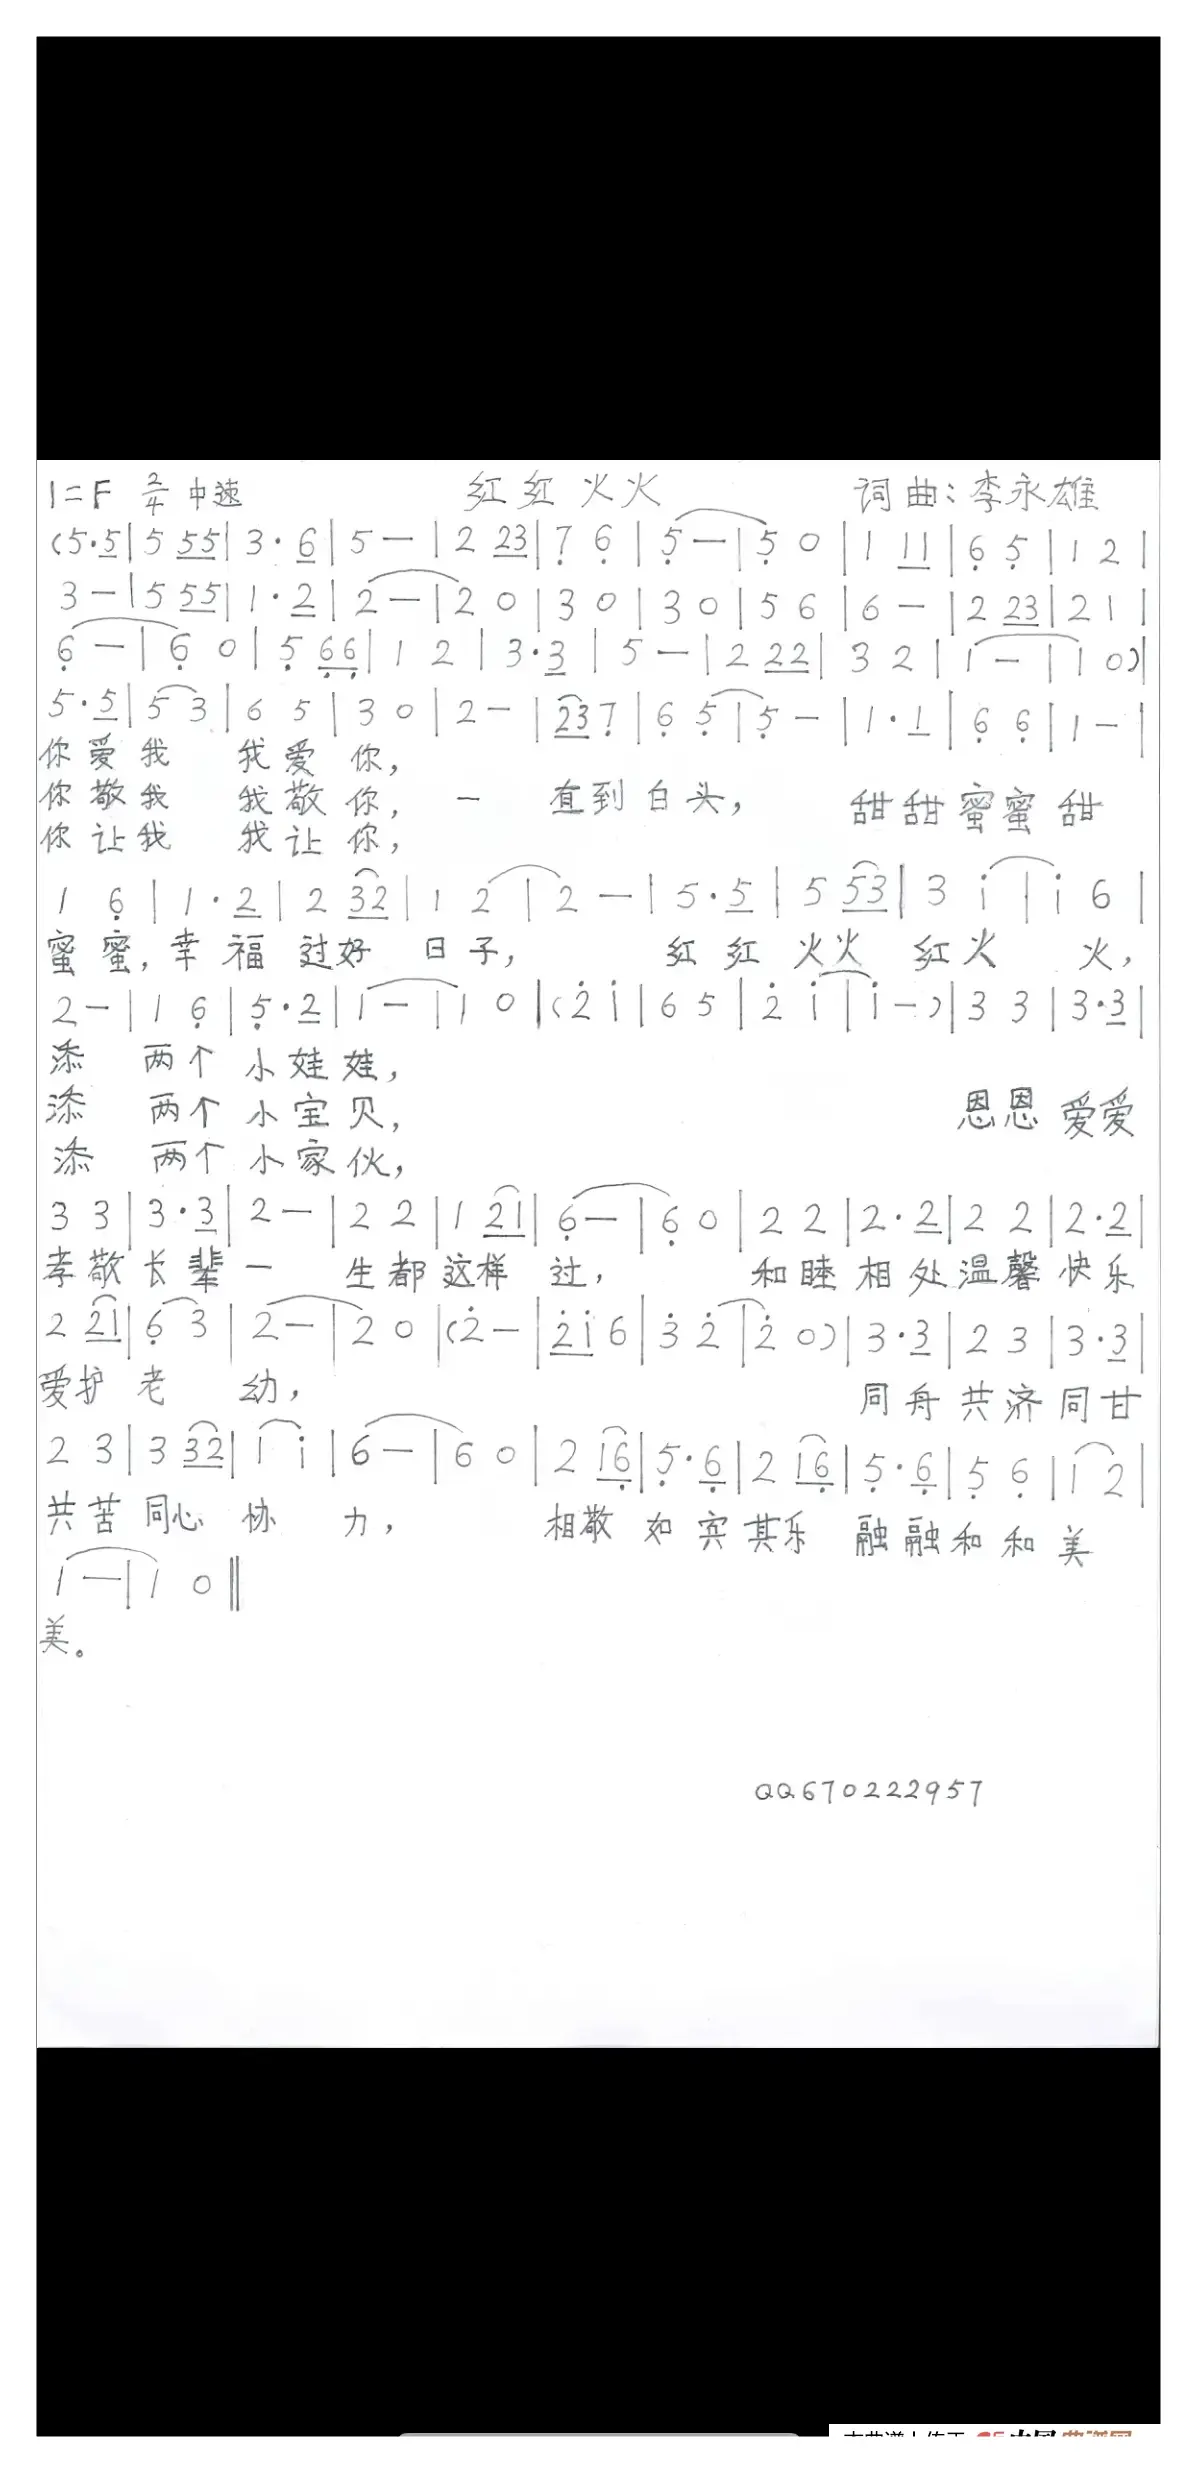 1=F 2/4 中速 红红火火 词曲:李永雄
(5·5|5 55|3·6|5 —|2 23|7 6|5 —|5 0|1 11|6 5|1 2|
3 —|5 55|1·2|2 —|2 0|3 0|3 0|5 6|6 —|2 23|2 1|
6 —|6 0|5 66|1 2|3·3|5 —|2 22|3 2|1 —|1 0)|
5·5|5 3|6 5|3 0|2 —|23 7|6 5|5 —|1·1|6 6|1 —|
你爱我 我爱你,
你敬我 我敬你, 一 直到白头, 甜甜蜜蜜甜
你让我 我让你,
1 6|1·2|2 32|1 2|2 —|5·5|5 53|3 i|i 6|
蜜蜜,幸福过好 日子, 红红火火 红火 火,
2 —|1 6|5·2|1 —|1 0|(2 i|6 5|2 i|i —)|3 3|3·3|
添 两个小娃娃,
添 两个小宝贝, 恩恩爱爱
添 两个小家伙,
3 3|3·3|2 —|2 2|1 21|6 —|6 0|2 2|2·2|2 2|2·2|
孝敬长辈一 生都这样 过, 和睦相处温馨快乐
2 21|6 3|2 —|2 0|(2 —|2i 6|3 2|2 0)|3·3|2 3|3·3|
爱护老 幼, 同舟共济同甘
2 3|3 32|1 i|6 —|6 0|2 16|5·6|2 16|5·6|5 6|1 2|
共苦同心 协 力, 相敬如宾其乐融融和和美
1 —|1 0‖
美。
QQ670222957